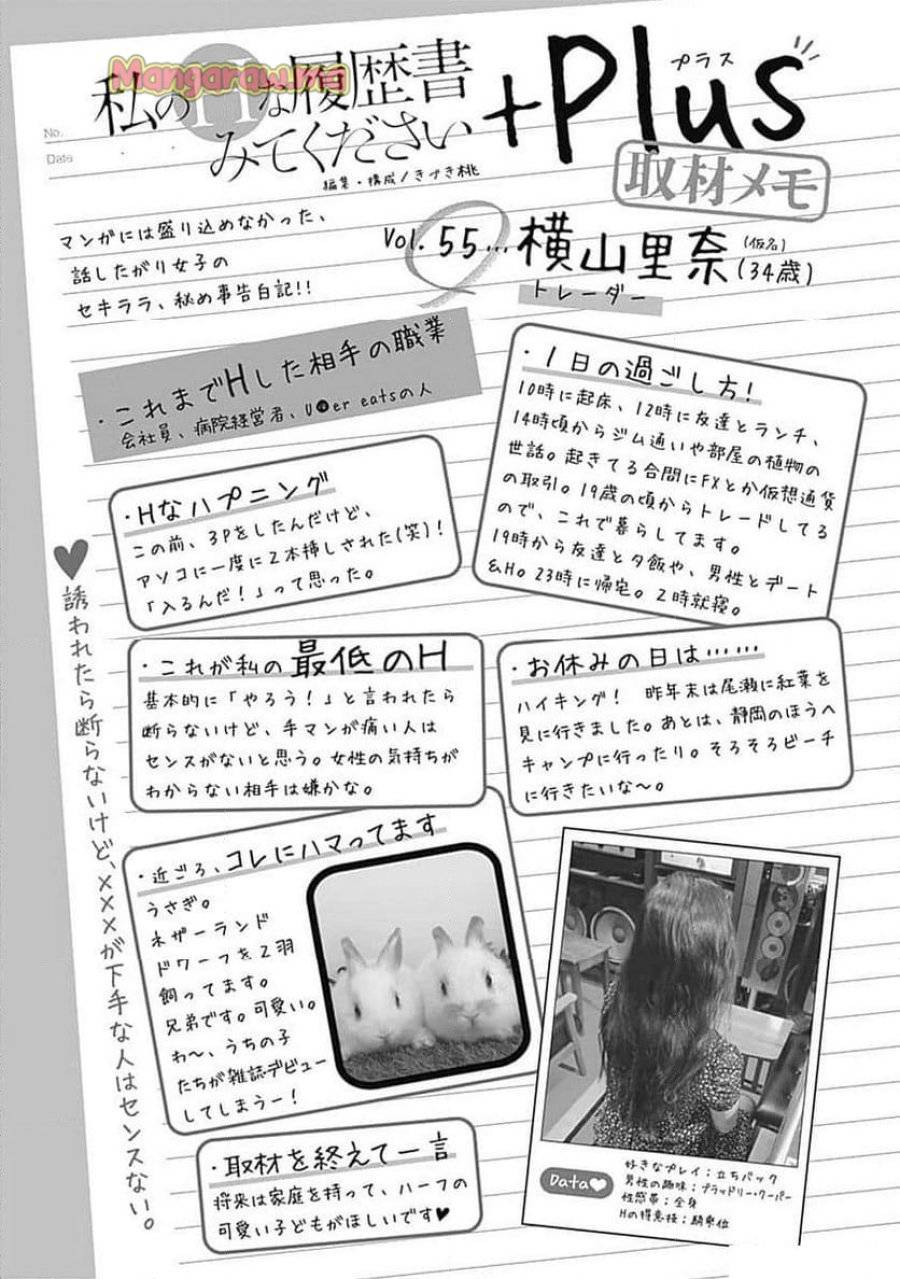 Mangaraw.me
私のHな履歴書
みてください
+Plus
プラス
No.
Date
編集・構成/きづき桃
取材メモ
マンガには盛り込めなかった、
話したがり女子の
セキララ、秘め事告白記!!
Vol. 55… 横山里奈(仮名)(34歳)
トレーダー
・これまでHした相手の職業
会社員、病院経営者、U●er eatsの人
・1日の過ごし方!
10時に起床、12時に友達とランチ、
14時頃からジム通いや部屋の植物の
世話。起きてる合間にFXとか仮想通貨
の取引。19歳の頃からトレードしてる
ので、これで暮らしてます。
19時から友達と夕飯や、男性とデート
&H。23時に帰宅。2時就寝。
・Hなハプニング
この前、3Pをしたんだけど、
アソコに一度に2本挿しされた(笑)!
「入るんだ!」って思った。
♥誘われたら断らないけど、×××が下手な人はセンスない。
・これが私の最低のH
基本的に「やろう!」と言われたら
断らないけど、手マンが痛い人は
センスがないと思う。女性の気持ちが
わからない相手は嫌かな。
・お休みの日は……
ハイキング! 昨年末は尾瀬に紅葉を
見に行きました。あとは、静岡のほうへ
キャンプに行ったり。そろそろビーチ
に行きたいな〜。
・近ごろ、コレにハマってます
うさぎ。
ネザーランド
ドワーフを2羽
飼ってます。
兄弟です。可愛い。
わ〜、うちの子
たちが雑誌デビュー
してしまうー!
・取材を終えて一言
将来は家庭を持って、ハーフの
可愛い子どもがほしいです♥
Data♥
好きなプレイ:立ちバック
男性の趣味:ブラッドリー・クーパー
性感帯:全身
Hの得意技:騎乗位